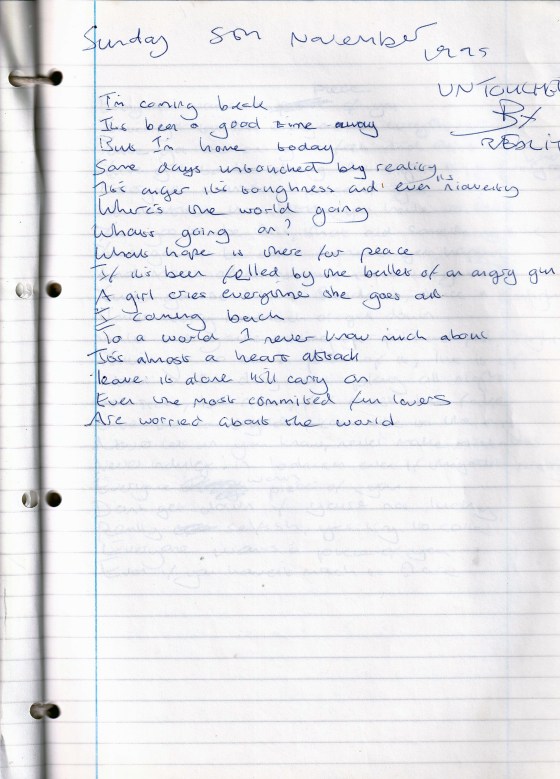 Sunday 5th November 1995
UNTOUCHED
By
REALIT
I'm coming back
It's been a good time away
But I'm home today
Some days untouched by reality
It's anger it's toughness and even it's
Where's the world going
Whats going on?
Whats hope is there for peace
If it's been felled by the bullet of an angry gun
A girl cries everytime she goes out
I coming back
To a world I never know much about
It's almost a heart attack
leave it alone it'll carry on
Even the most commited fun lovers
Are worried about the world